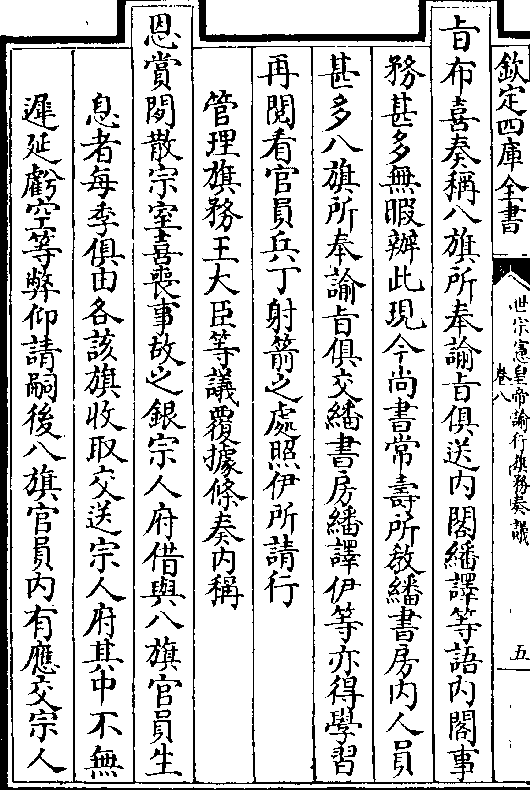 欽定四庫全書
世宗憲皇帝諭行旗務奏議
卷八
五
旨布喜奏稱八旗所奉諭旨俱送內閣繙譯等語內閣事
務甚多無暇辦此現今尚書常壽所教繙書房內人員
甚多八旗所奉諭旨俱交繙書房繙譯伊等亦得學習
再閱看官員兵丁射箭之處照伊所請行
管理旗務王大臣等議覆據條奏內稱
恩賞閑散宗室喜喪事故之銀宗人府借與八旗官員生
息者每季俱由各該旗收取交送宗人府其中不無
遲延虧空等弊仰請嗣後八旗官員內有應交宗人